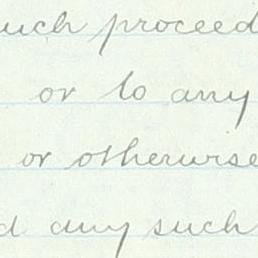 such proceed
or to any
or otherwise
d any such